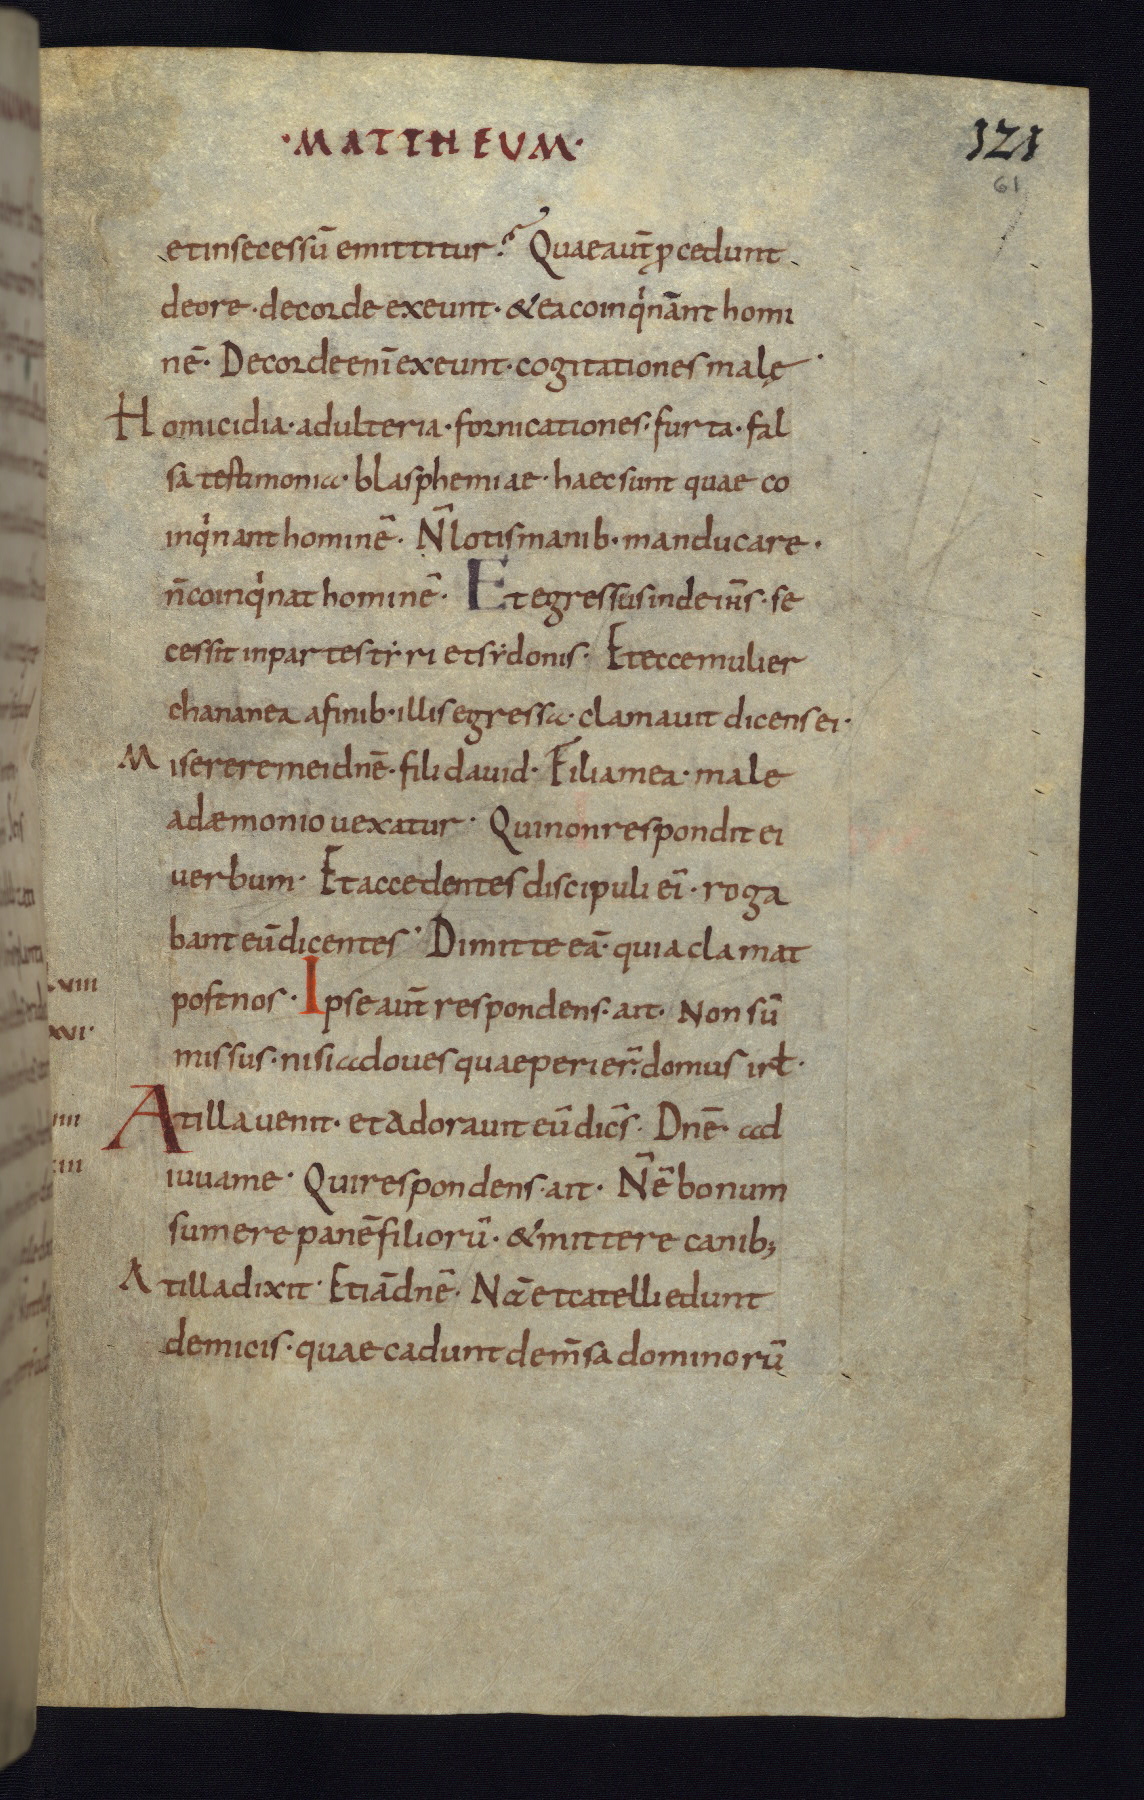 ·MATTHEUM·
121
61
et insecessū emittitur? Quae aut̄ ꝓcedunt
deore · decorde exeunt · & ea coinqͥnānt homi
nē· Decorde enī exeunt · cogitationes malę·
Homicidia · adulteria · fornicationes · furta · fal
sa testimonia · blasphemiae · haec sunt quae co
inqͥnant hominē· N̄ lotis manib· manducare·
n̄ coinqͥnat hominē· Et egressus inde ih̄s · se
cessit inpartes tẏri et sẏdonis· Et ecce mulier
chananea afinib· illis egressa · clamauit dicens ei·
Miserere mei dnē · fili dauid· Filia mea · male
adæmonio uexatur· Qui non respondit ei
uerbum· Et accedentes discipuli eī · roga
bant eū dicentes· Dimitte eā · quia clamat
post nos· Ipse aut̄ respondens · ait· Non sū
LVIII
XXVI·
missus · nisi ad oues quae perier̄ · domus irł·
At illa uenit · et adorauit eū dic̄s· Dnē · ad
IIII
iuuame· Qui respondens · ait· N̄ ē bonum
sumere panē filiorū · & mittere canib;
At illa dixit· Etiā dnē· Nā et catelli edunt
demicis · quae cadunt dem̄sa dominorū